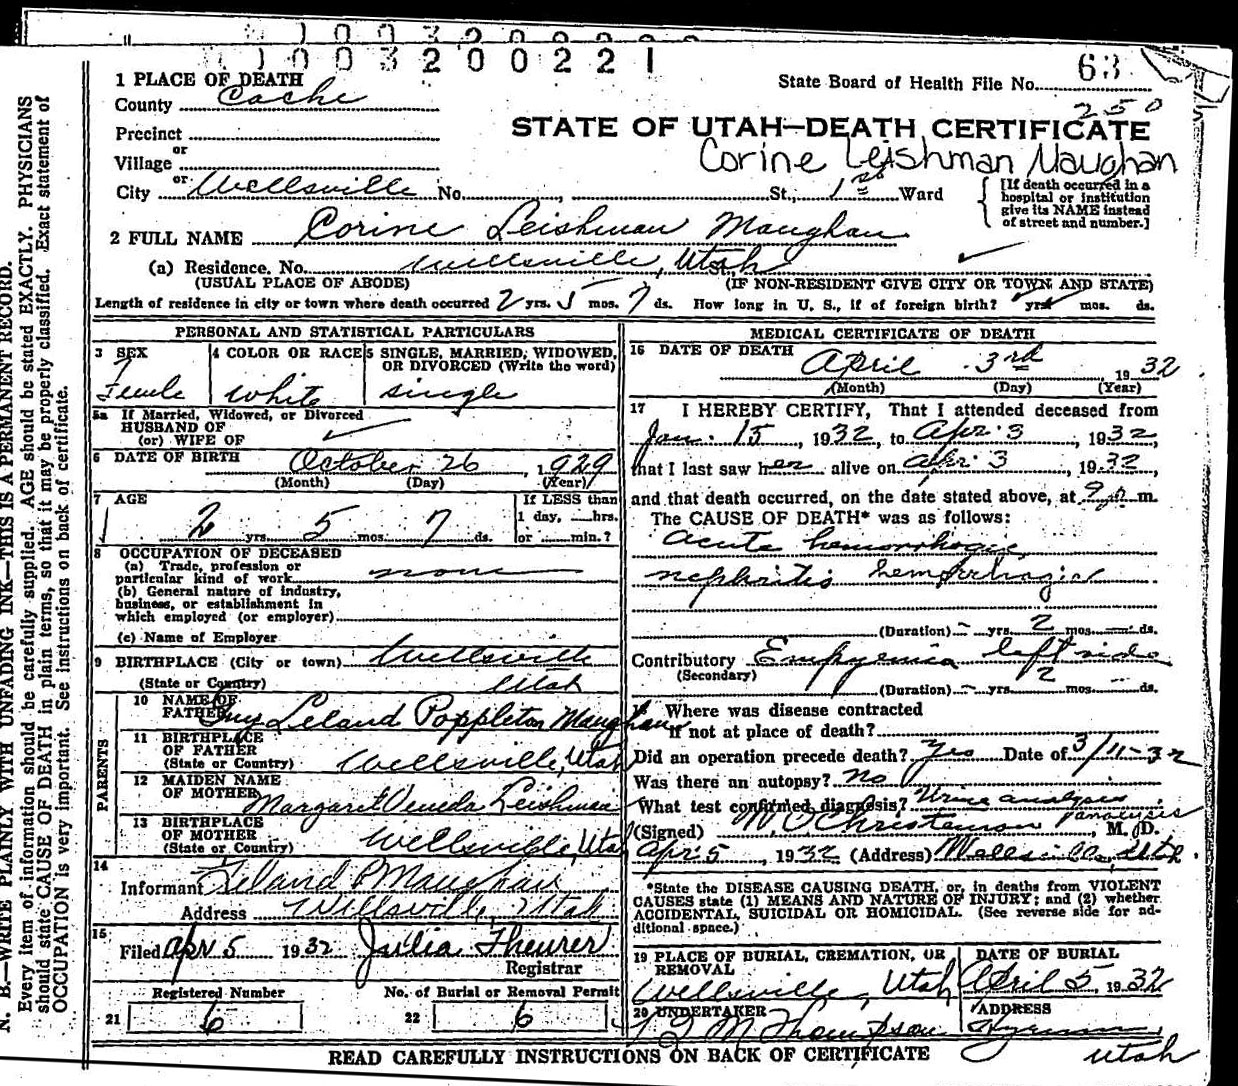 1003200221
State Board of Health File No. 63
250
1 PLACE OF DEATH
County Cache
STATE OF UTAH—DEATH CERTIFICATE
Precinct
or
Village
Corine Leishman Maughan
or
City Wellsville No. St., 1st Ward
[If death occurred in a hospital or institution give its NAME instead of street and number.]
2 FULL NAME Corine Leishman Maughan
(a) Residence. No. Wellsville, Utah St.
(USUAL PLACE OF ABODE) (IF NON-RESIDENT GIVE CITY OR TOWN AND STATE)
Length of residence in city or town where death occurred 2 yrs. 5 mos. 7 ds. How long in U. S., if of foreign birth? yrs. mos. ds.
PERSONAL AND STATISTICAL PARTICULARS
3 SEX 4 COLOR OR RACE 5 SINGLE, MARRIED, WIDOWED, OR DIVORCED (Write the word)
Female white single
5a If Married, Widowed, or Divorced
HUSBAND OF
(or) WIFE OF
6 DATE OF BIRTH October 26, 1929
(Month) (Day) (Year)
7 AGE If LESS than
1 day, hrs.
2 yrs. 5 mos. 7 ds. or min.?
8 OCCUPATION OF DECEASED
(a) Trade, profession or
particular kind of work none
(b) General nature of industry,
business, or establishment in
which employed (or employer)
(c) Name of Employer
9 BIRTHPLACE (City or town) Wellsville
(State or Country) Utah
PARENTS
10 NAME OF
FATHER Guy Leland Poppleton Maughan
11 BIRTHPLACE
OF FATHER
(State or Country) Wellsville, Utah
12 MAIDEN NAME
OF MOTHER Margaret Veneda Leishman
13 BIRTHPLACE
OF MOTHER
(State or Country) Wellsville, Utah
14
Informant Leland P Maughan
Address Wellsville, Utah
15
Filed Apr 5 1932 Julia Theurer
Registrar
Registered Number No. of Burial or Removal Permit
21 6 22 6
MEDICAL CERTIFICATE OF DEATH
16 DATE OF DEATH April 3rd 1932
(Month) (Day) (Year)
17 I HEREBY CERTIFY, That I attended deceased from
Jan. 15, 1932, to Apr. 3, 1932,
that I last saw her alive on Apr. 3, 1932,
and that death occurred, on the date stated above, at 9 p. m.
The CAUSE OF DEATH* was as follows:
acute hemorrhagic
nephritis hemorrhagic
(Duration) — yrs. 2 mos. — ds.
Contributory Empyemia left side
(Secondary) 2
(Duration) — yrs. mos. — ds.
18 Where was disease contracted
if not at place of death?
Did an operation precede death? Yes Date of 3/11-32
Was there an autopsy? No
What test confirmed diagnosis? Urine analysis
(Signed) W O Christenson, M. D.
Apr 5, 1932 (Address) Wellsville, Utah
*State the DISEASE CAUSING DEATH, or, in deaths from VIOLENT
CAUSES state (1) MEANS AND NATURE OF INJURY; and (2) whether
ACCIDENTAL, SUICIDAL OR HOMICIDAL. (See reverse side for ad-
ditional space.)
19 PLACE OF BURIAL, CREMATION, OR REMOVAL DATE OF BURIAL
Wellsville, Utah April 5, 1932
20 UNDERTAKER ADDRESS
M Thompson Hyrum
Utah
READ CAREFULLY INSTRUCTIONS ON BACK OF CERTIFICATE
N. B.—WRITE PLAINLY WITH UNFADING INK—THIS IS A PERMANENT RECORD.
Every item of information should be carefully supplied. AGE should be stated EXACTLY. PHYSICIANS
should state CAUSE OF DEATH in plain terms, so that it may be properly classified. Exact statement of
OCCUPATION is very important. See instructions on back of certificate.